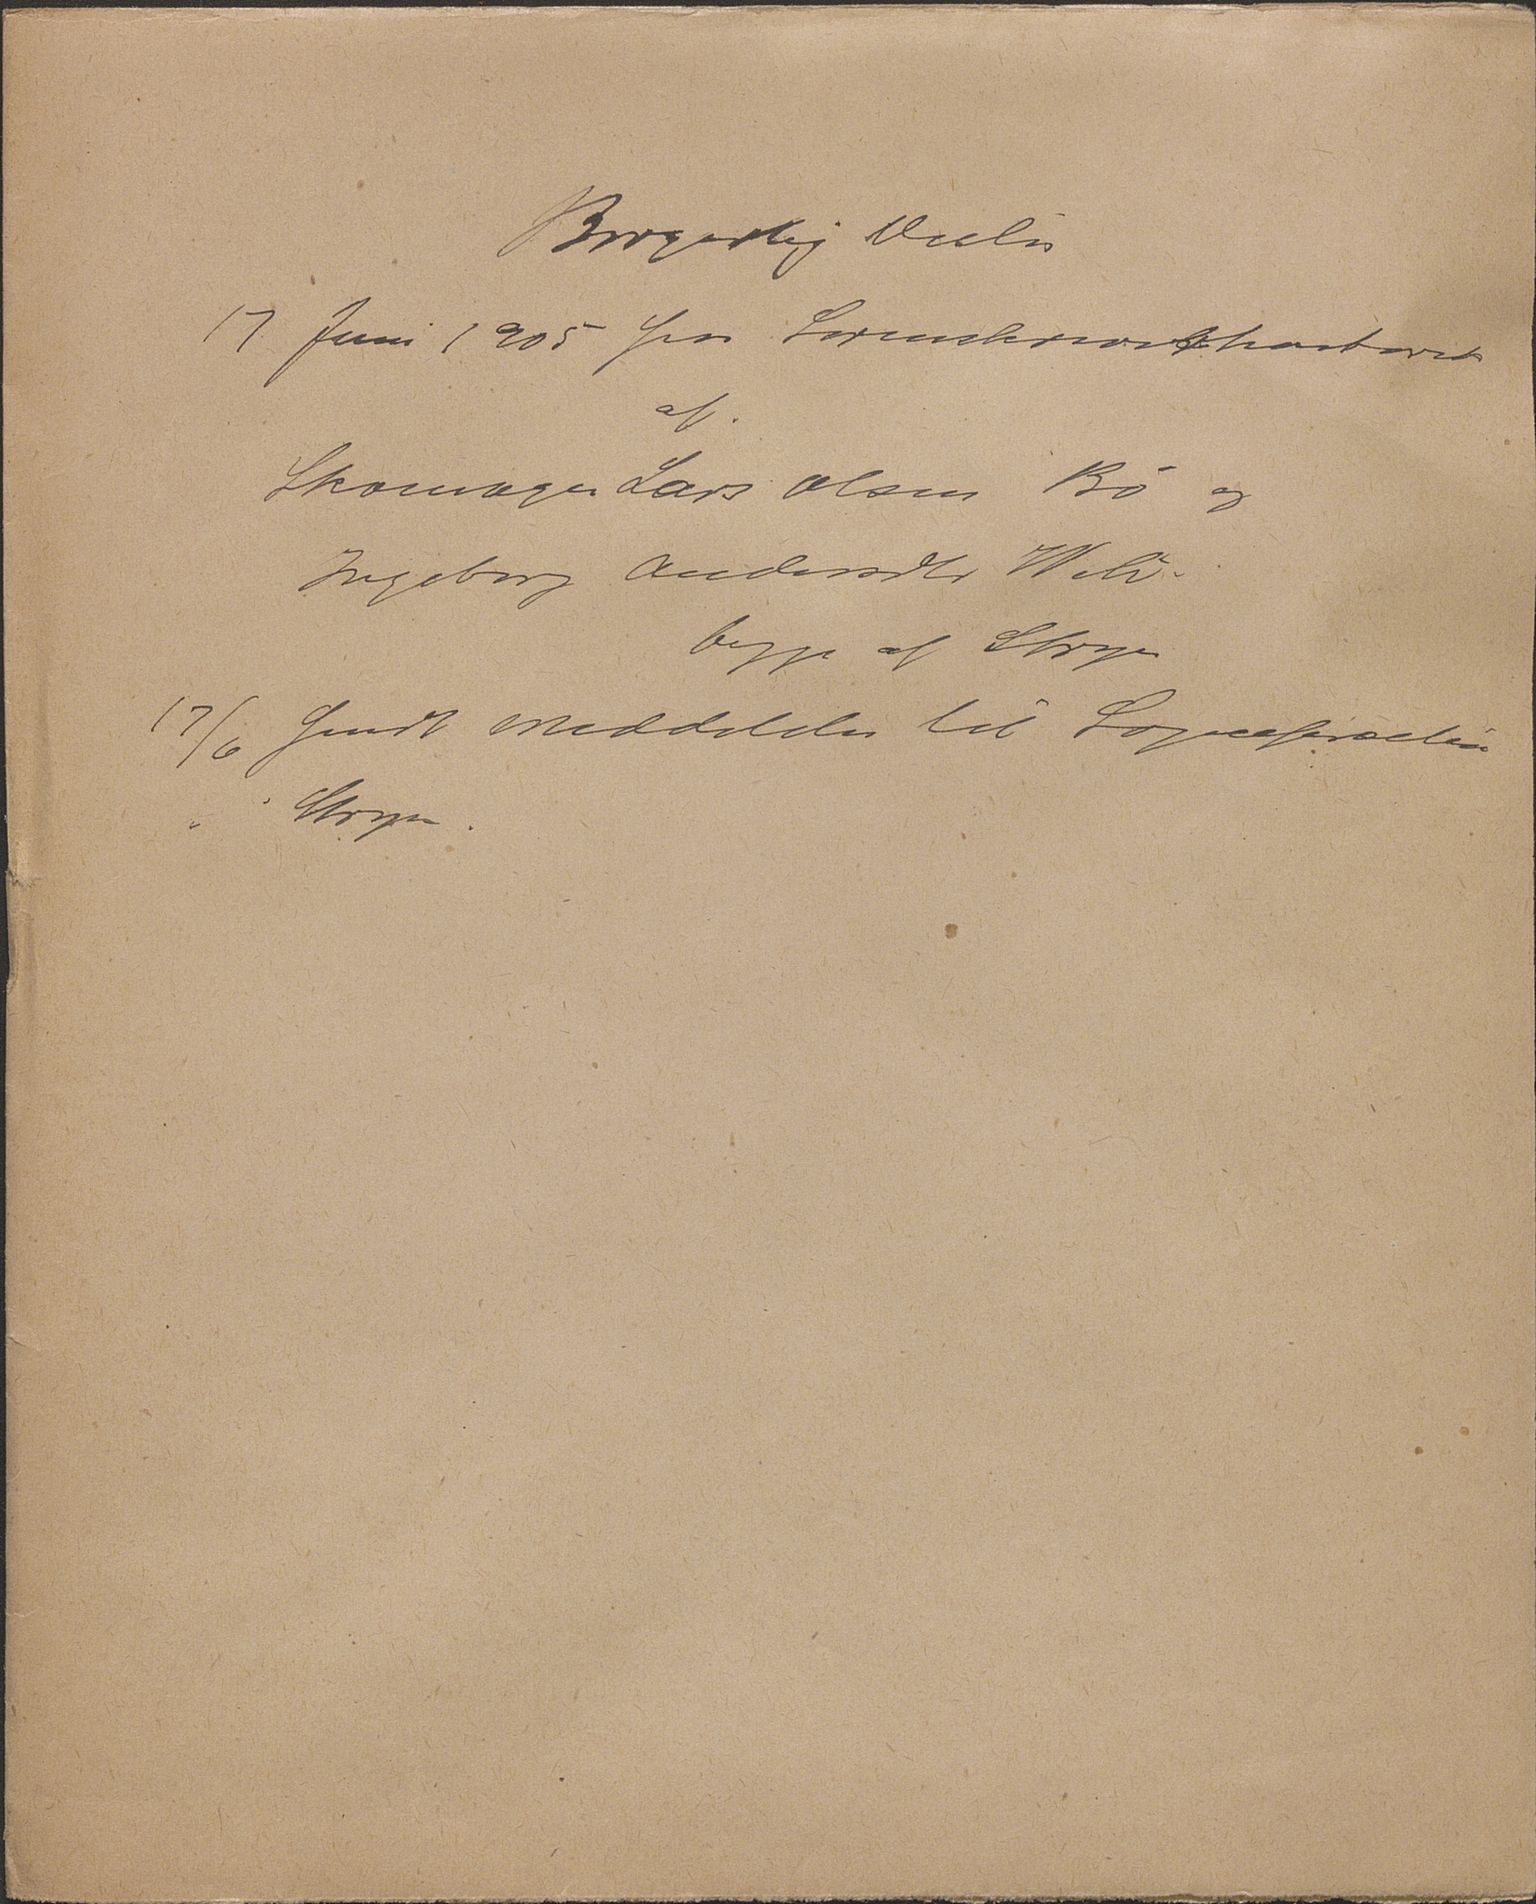 Borgerlig Vielse
17 Juni 1905 paa Sorenskriverkontoret
af.
Skomager Lars Olsen Bö og
Ingeborg Andersdtr
begge af Stryn
17/6 Sendt Meddelelse til Sognepræsten
" " Stryn.